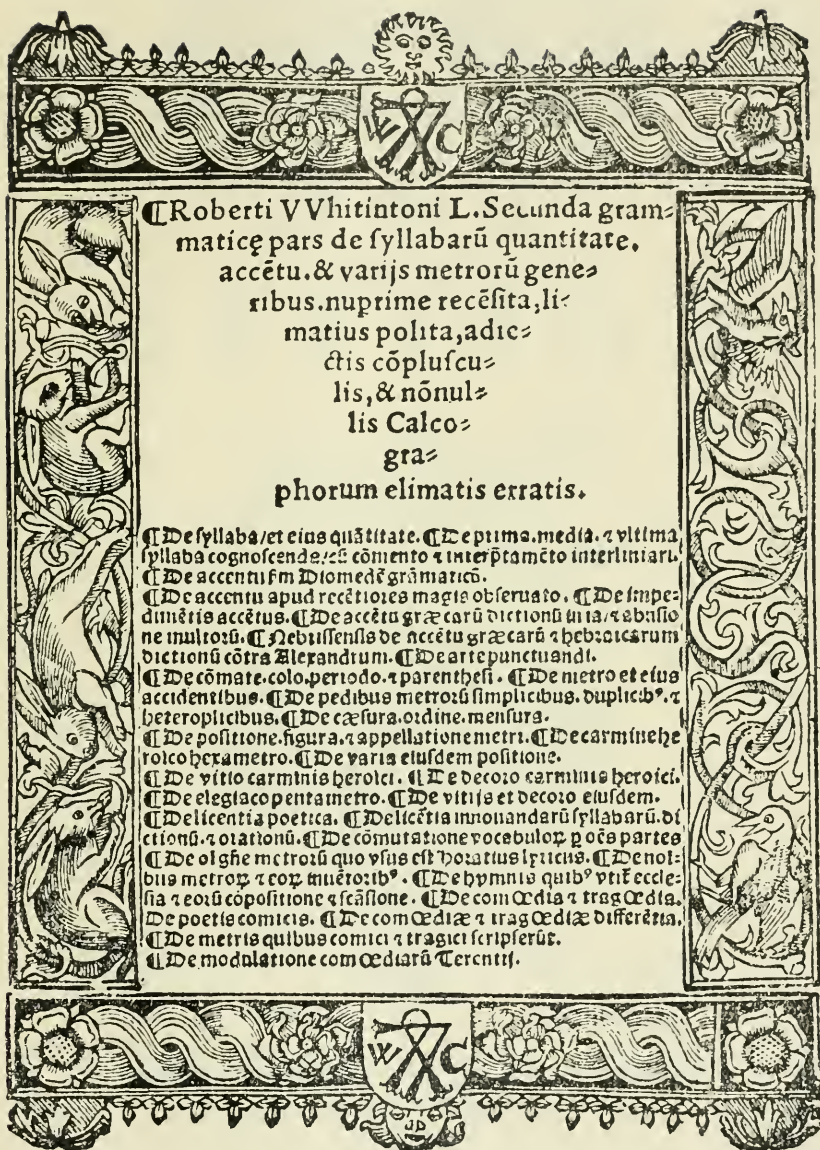 W C
¶Roberti VVhitintoni L. Secunda gram⸗
maticę pars de ſyllabarū quantitate.
accētu. & varijs metrorū gene⸗
ribus. nuprime recēſita, li⸗
matius polita, adie⸗
ctis cōpluſcu⸗
lis, & nōnul⸗
lis Calco⸗
gra⸗
phorum elimatis erratis.
¶De ſyllaba/et eius quātitate. ¶De prima. media. ⁊ vltima
ſyllaba cognoſcenda/cū cōmento ⁊ interp̄tamēto interliniari.
¶De accentu ſm Diomedē grāmaticū.
¶De accentu apud recētiores magis obſeruato. ¶De impe⸗
dimētis accētus. ¶De accētu græcarū dictionū in ia/⁊ abuſio
ne multorū. ¶Nebriſſenſis de accētu græcarū ⁊ hebraicarum
dictionū cōtra Alexandrum. ¶De arte punctuandi.
¶De cōmate. colo. periodo. ⁊ parentheſi. ¶De metro et eius
accidentibus. ¶De pedibus metrorū ſimplicibus. duplicibꝰ. ⁊
heteroplicibus. ¶De cæſura. ordine. menſura.
¶De poſitione. figura. ⁊ appellatione metri. ¶De carmine he
roico hexametro. ¶De varia eiuſdem poſitione.
¶De vitio carminis heroici. ¶De decoro carminis heroici.
¶De elegiaco pentametro. ¶De vitijs et decoro eiuſdem.
¶De licentia poetica. ¶De licētia innouandarū ſyllabarū. di
ctionū. ⁊ orationū. ¶De cōmutatione vocabuloꝝ p oēs partes
¶De oī gn̄e metrorū quo vſus eſt Horatius lyricus. ¶De noī⸗
bus metroꝝ ⁊ eoꝝ inuētoribꝰ. ¶De hymnis quibꝰ vtit̄ eccle⸗
ſia ⁊ eorū cōpoſitione ⁊ ſcāſione. ¶De comœdia ⁊ tragœdia.
De poetis comicis. ¶De comœdiæ ⁊ tragœdiæ differētia.
¶De metris quibus comici ⁊ tragici ſcripſerūt.
¶De modulatione comœdiarū Terentij.
W C